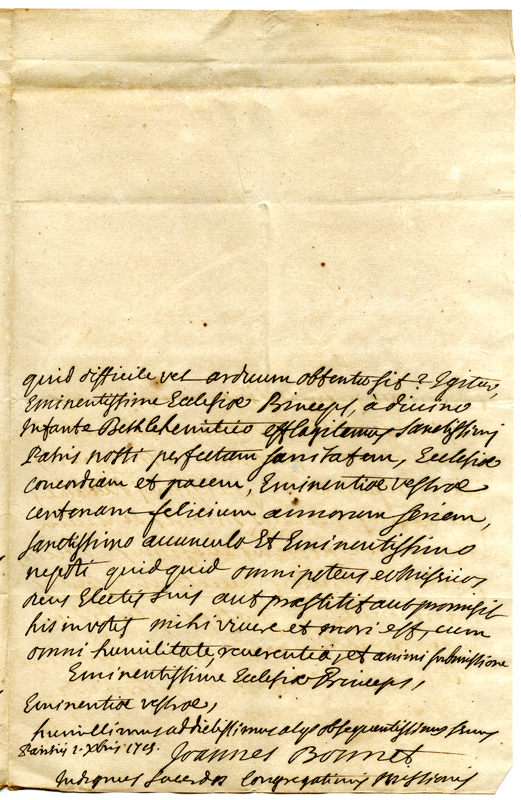 quid difficile vel arduum obtentu sit? Igitur,
Eminentissime Ecclesiæ Princeps, à divino
Infante Bethlehemitico efflagitamus Sanctissimi
Patris nostri perfectam sanitatem, Ecclesiæ
concordiam et pacem, Eminentiæ vestræ
centenam felicium annorum seriem,
Sanctissimo avunculo Et Eminentissimo
nepoti quidquid omnipotens et
Deus Electis suis aut præstitit aut promisit
his in votis mihi vivere et mori est, cum
omni humilitate, reverentiâ, et animi submissione
Eminentissime Ecclesiæ Princeps,
Eminentiæ vestræ,
humillimus addictissimus obsequentissimus servus
Parisiis 2. Xbris
Joannes Bonnet
Indignus sacerdos Congregationis Missionis